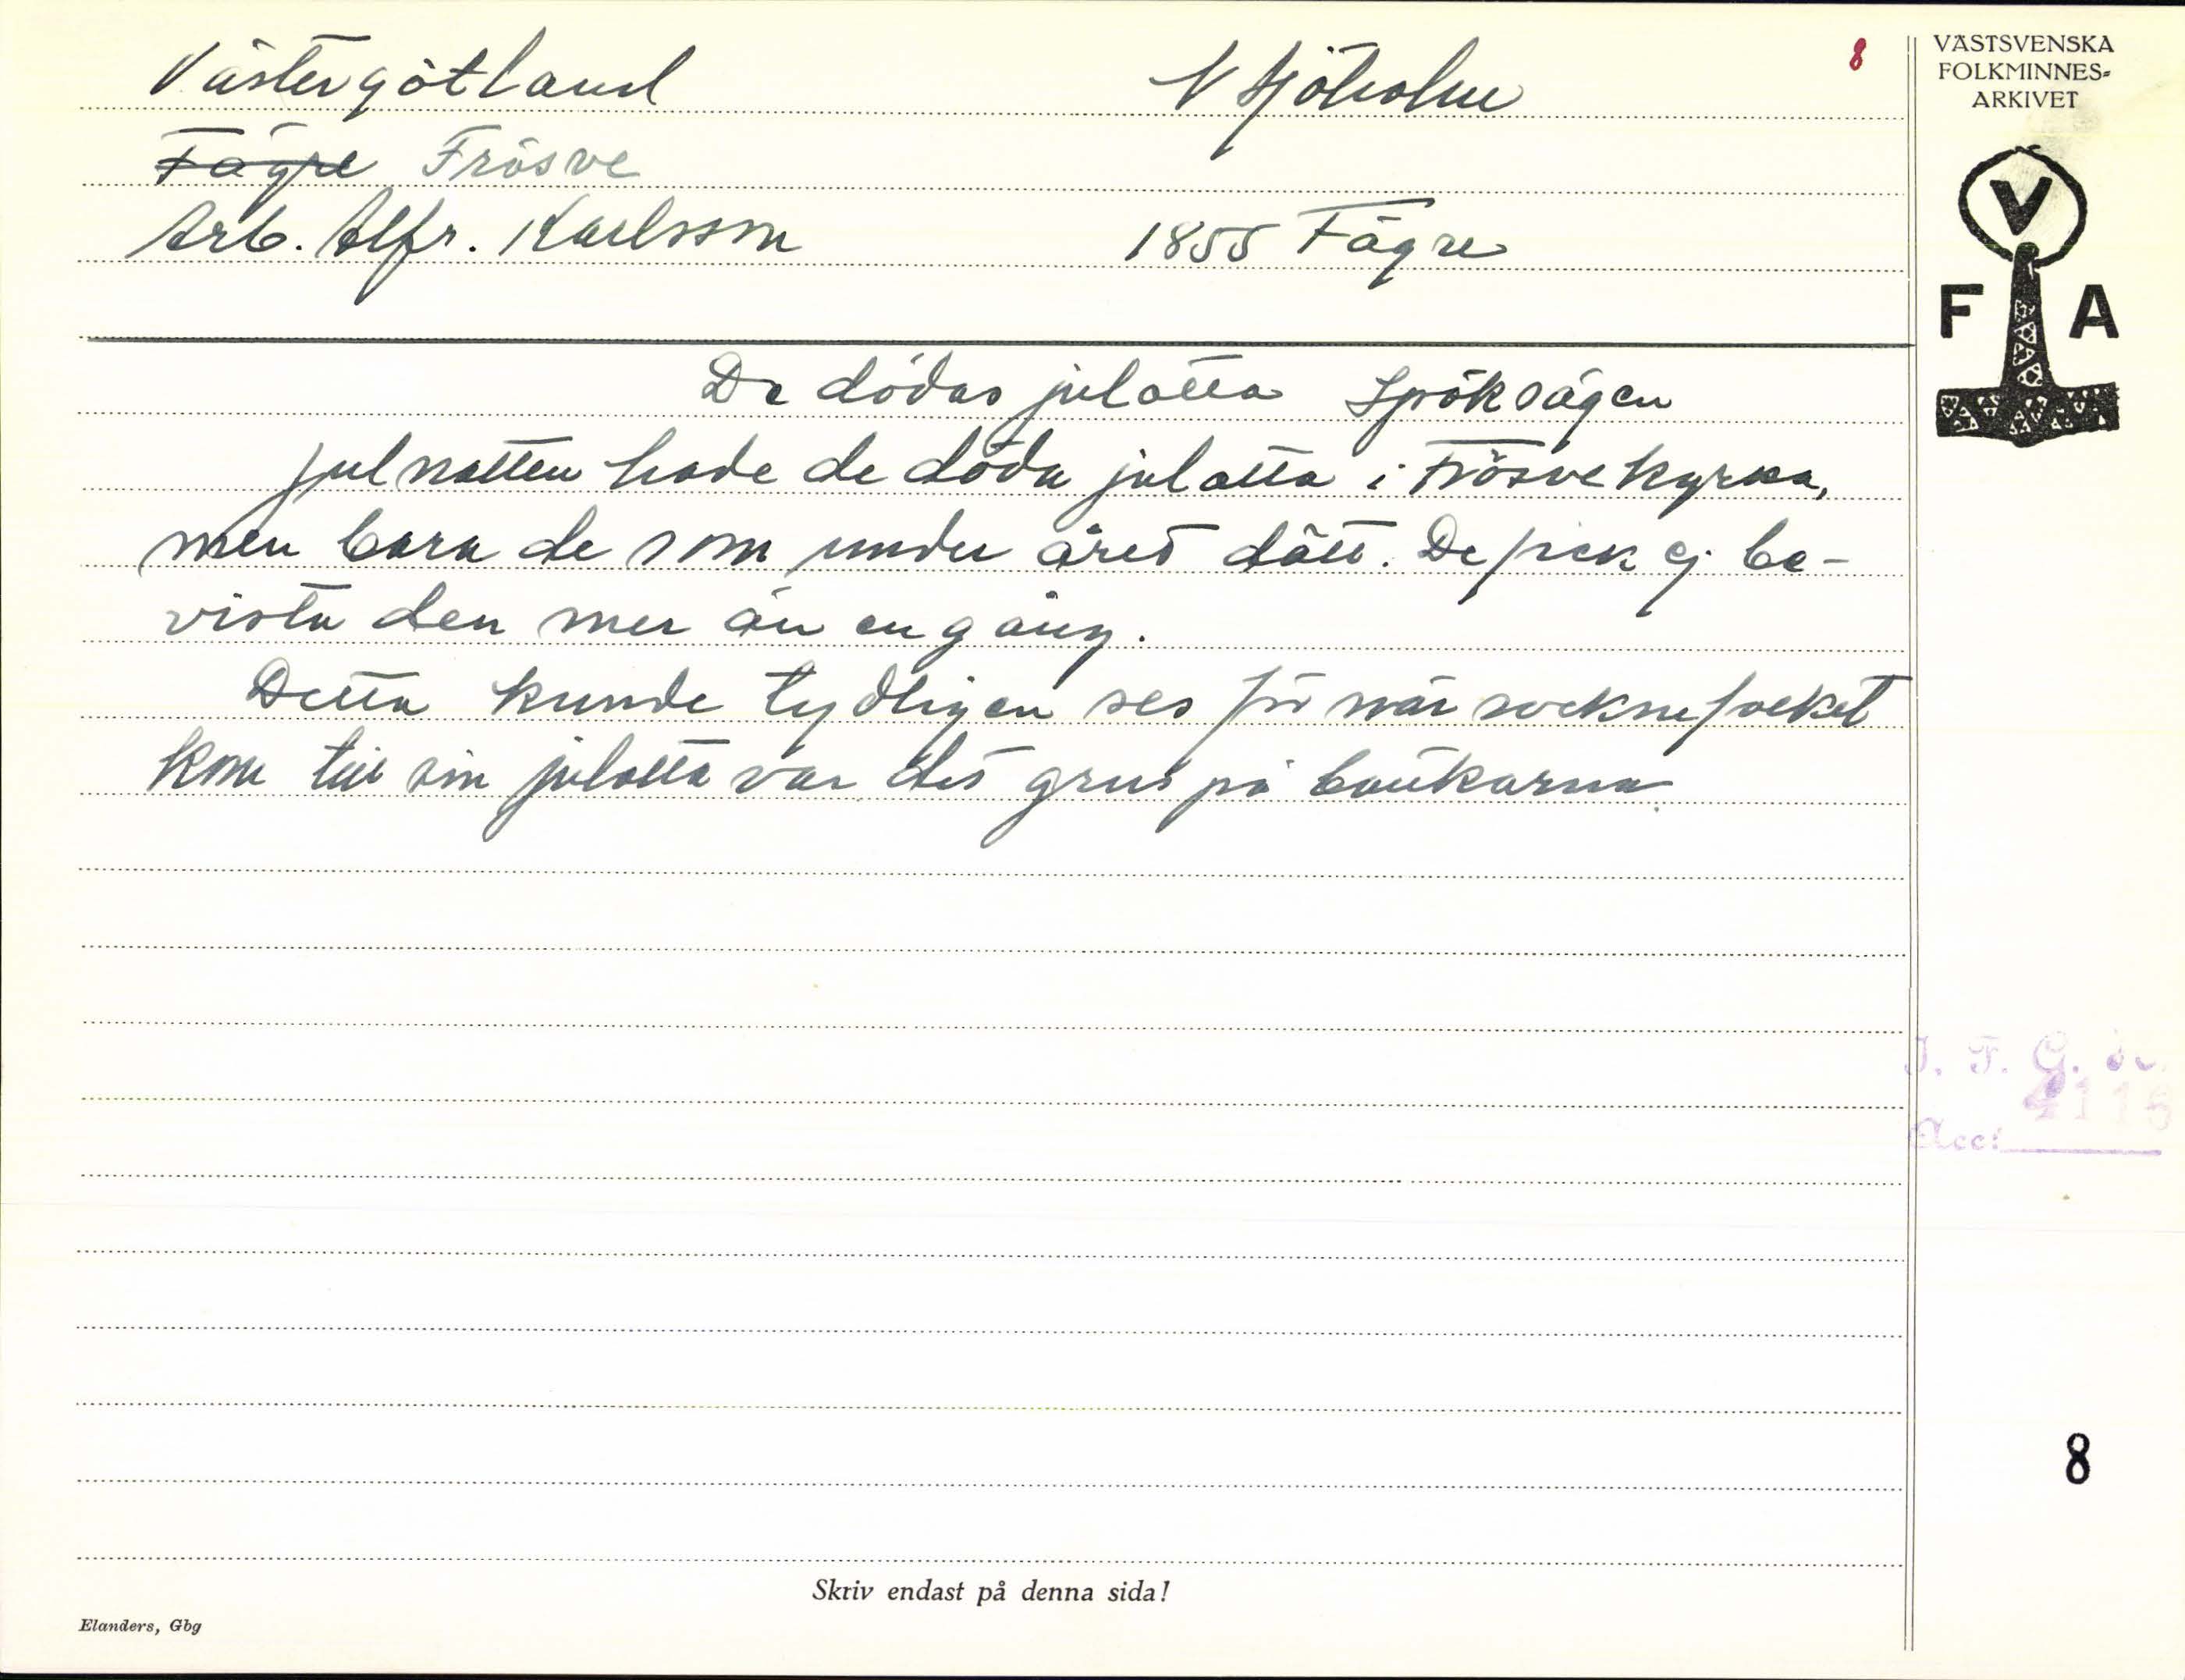 Västergötland N Sjöholm 8
Fägre Frösve
Arb. Alfr. Karlsson 1855 Fägre
De dödas julotta Spöksägen
Julnatten hade de döda julotta i Frösve kyrka,
men bara de som under året dått. De fick ej be-
vista den mer än en gång.
Detta kunde tydligen ses för när socknefolket
kom till sin julotta var det grus på bänkarna.
VÄSTSVENSKA
FOLKMINNES-
ARKIVET
V
F A
I. F. G. nr
4115
Acc:
8
Skriv endast på denna sida!
Elanders, Gbg